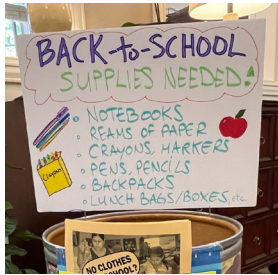 BACK-to-SCHOOL
SUPPLIES NEEDED!
NOTEBOOKS
REAMS OF PAPER
CRAYONS, MARKERS
PENS, PENCILS
BACKPACKS
LUNCH BAGS/BOXES, etc.
Crayons
NO CLOTHES
SCHOOL?